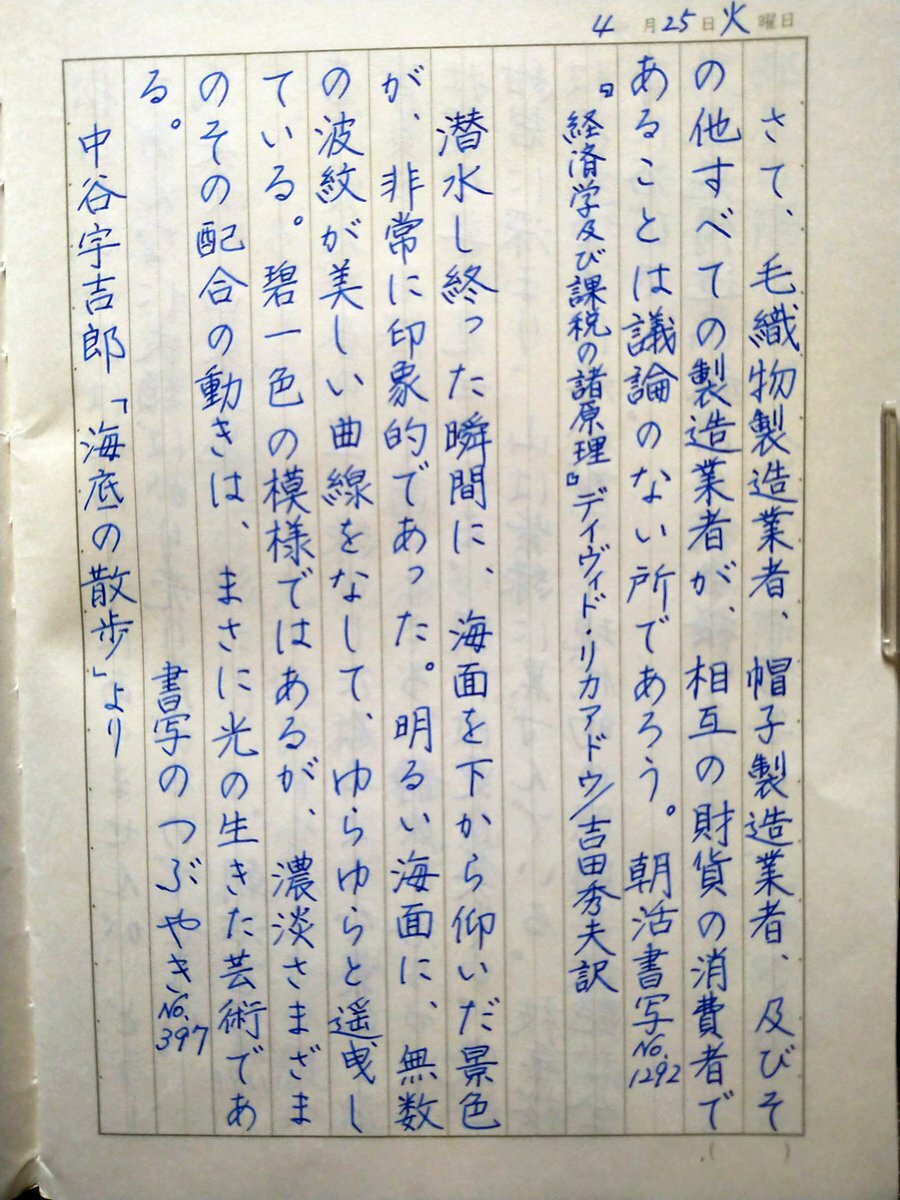 4月25日火曜日
さて、毛織物製造業者、帽子製造業者、及びそ
の他すべての製造業者が、相互の財貨の消費者で
あることは議論のない所であろう。朝活書写No.1292
『経済学及び課税の諸原理』デイヴィド・リカアドウ/吉田秀夫訳
潜水し終った瞬間に、海面を下から仰いだ景色
が、非常に印象的であった。明るい海面に、無数
の波紋が美しい曲線をなして、ゆらゆらと遥曳し
ている。碧一色の模様ではあるが、濃淡さまざま
のその配合の動きは、まさに光の生きた芸術であ
る。書写のつぶやきNo.397
中谷宇吉郎「海底の散歩」より